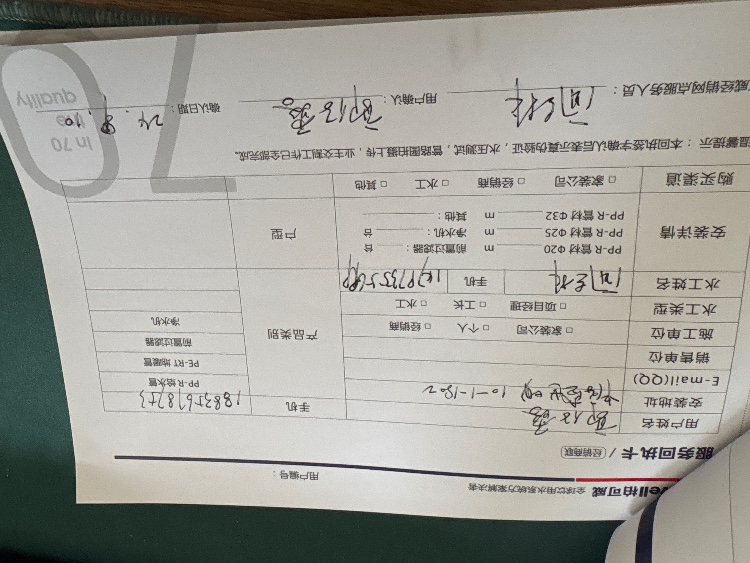 vell柏可威 全球饮用水系统方案解决者
用户编号：
服务回执卡 / 经销商联
用户姓名
手机 18835678753
安装地址 10-1-1802
E-mail(QQ)
销售单位
施工单位 □ 家装公司 □ 个人 □ 经销商
水工类型 □ 项目经理 □ 工长 □ 水工
水工姓名 手机
产品类别
PP-R 给水管
PE-RT 地暖管
前置过滤器
净水机
安装详情
PP-R 管材 Φ20 m 前置过滤器： 台
PP-R 管材 Φ25 m 净水机： 台
PP-R 管材 Φ32 m 其他：
户型
购买渠道 □ 家装公司 □ 经销商 □ 水工 □ 其他
温馨提示：本回执签字确认后表示真伪验证，水压测试，管路图拍摄上传，业主交割工作已全部完成。
威经销网点服务人员：
用户确认：
确认日期： 24.8.10
70
In 70
the
quality